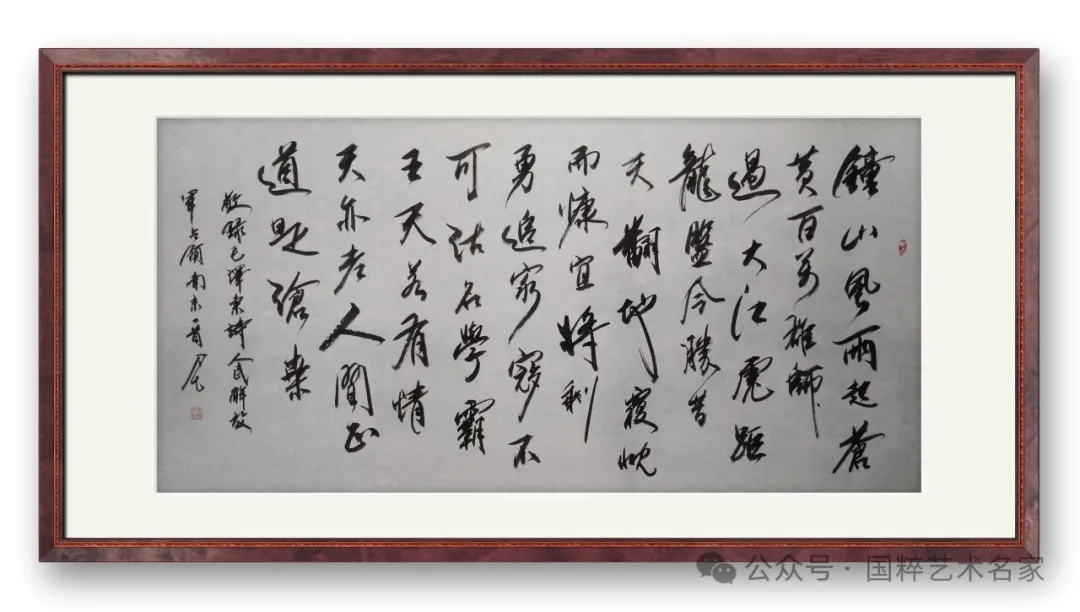 鐘山風雨起蒼
黄百萬雄師
過大江虎踞
龍盤今勝昔
天翻地覆慨
而慷宜將剩
勇追窮寇不
可沽名學霸
王天若有情
天亦老人間正
道是滄桑
敬録毛澤東詩人民解放
軍占領南京一首
公众号 · 国粹艺术名家